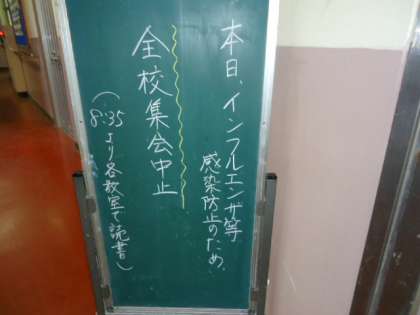 本日、インフルエンザ等
感染防止のため、
全校集会中止
（8:35より各教室で読書）